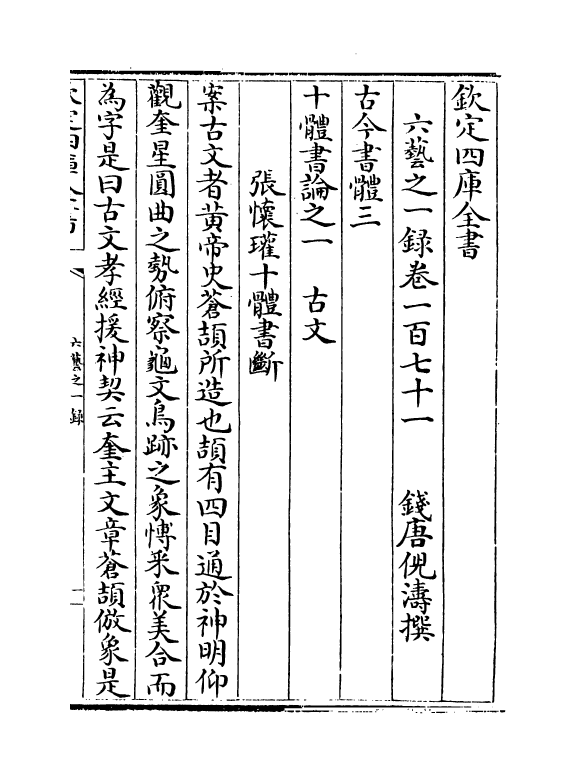 欽定四庫全書
六藝之一錄卷一百七十一　錢唐倪濤撰
古今書體三
十體書論之一　古文
張懷瓘十體書斷
案古文者黃帝史蒼頡所造也頡有四目通於神明仰
觀奎星圓曲之勢俯察龜文鳥跡之象博采衆美合而
為字是曰古文孝經援神契云奎主文章蒼頡倣象是
六藝之一錄